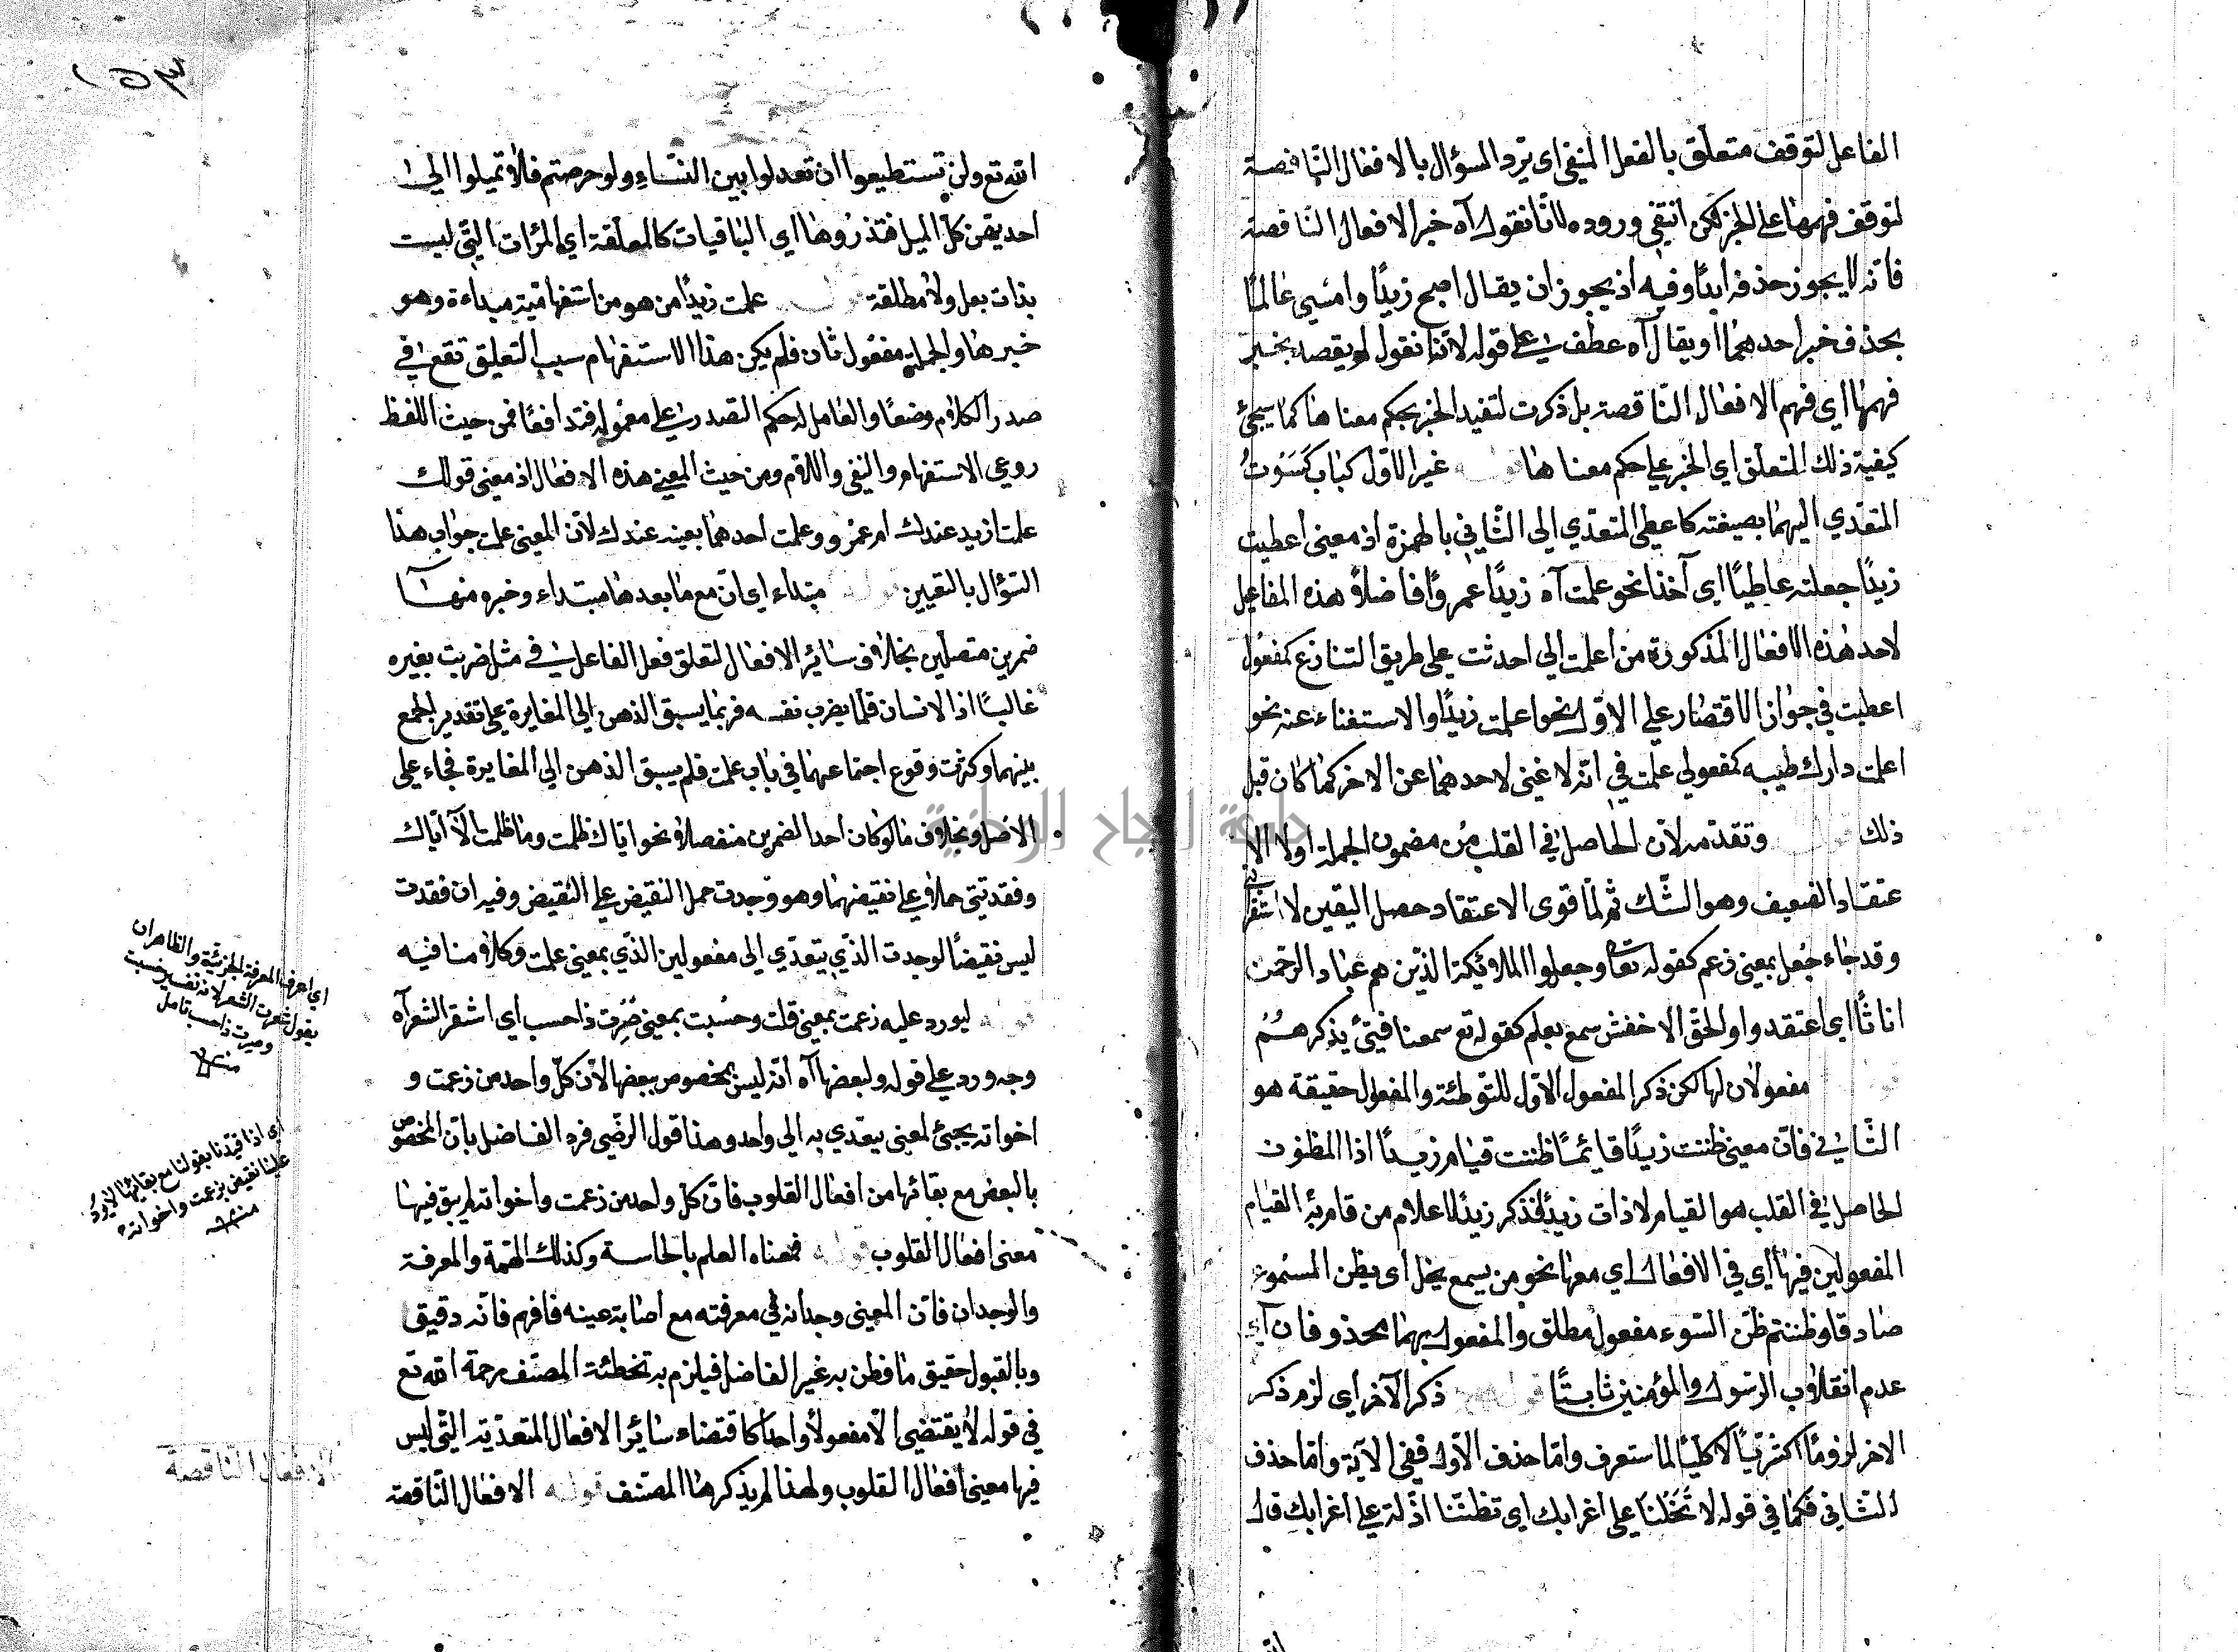 الفاعل لتوقف متعلق بالفعل المنفي اى يرد السؤال بالافعال الناقصة
لتوقف فهمها على الخبر لكن انتفى وروده لانا نقول آه خبر الافعال الناقصة
فانه لا يجوز حذفه ابدًا وفيه اذ يجوز ان يقال اصبح زيدًا وامسى عالمًا
بحذف خبر احدهما او يقال آه عطف على قوله لاننا نقول لم يقصد بخبر
فهمها اى فهم الافعال الناقصة بل ذكرت لتفيد الخبر بحكم معناها كما سيجئ
كيفية ذلك المتعلق اى الخبر على حكم معناها قوله غير الاول كباب كسوتُ
المتعدي اليهما بصيغته كاعطى المتعدّي الى الثاني بالهمزة اذ معنى اعطيت
زيدًا جعلته عاطيًا اى آخذا نحو علمت آه زيدًا عمروًا فاضلاً هذه المفاعيل
لاحد هذه الافعال المذكورة من اعلمت الى احدثت على طريق التنازع كمفعول
اعطيت في جواز الاقتصار على الاول نحو اعلمت زيدًا والاستغناء عنه نحو
اعلمت دارك طيبه كمفعولي علمت في انه لا غنى لاحدهما عن الاخر كما كان قبل
ذلك قوله وتقدمه لان الحاصل في القلب من مضمون الجملة اولا الا
عتقاد الضعيف وهو الشّك ثم لمّا قوى الاعتقاد حصل اليقين لا استقرائي
وقد جاء جُعل بمعنى زعم كقوله تعا وجعلوا الملائكة الذين هم عباد الرحمن
اناثًا اى اعتقدوا والحق الاخفش سمع بعلم كقوله تع سمعنا فتىً يذكرهُمُ
مفعولان لها لكن ذكر المفعول الاول للتوطئة والمفعول حقيقة هو
الثاني فان معنى ظننت زيدًا قايمًا ظننت قيام زيدًا اذا المظنون
الحاصل في القلب هو القيام لا ذات زيدٍ فذكر زيدٍ للاعلام من قام به القيام
المفعولين فيها اى في الافعال اى معها نحو من يسمع يخل اى يظن المسموع
صادقا وظننتم ظن السّوء مفعول مطلق والمفعول بهما محذوفان اى
عدم انقلاب الرسول والمؤمنين ثابتًا قوله ذكر الآخر اى لزم ذكر
الاخر لزومًا اكثريًا لا كليًا لما ستعرف وامّا حذف الاول ففي الآية وامّا حذف
الثاني فكما في قوله لا تَخَلْنا على اغرابك اى تظننّا اذلة على اغرابك قال
١٥٣
الله تع ولن تستطيعوا ان تعدلوا بين النساءِ ولو حرصتم فلا تميلوا الى
احديهن كل الميل فتذرُوها اى الباقيات كالمعلقة اى المرات التي ليست
بذات بعل ولا مطلقة قوله علمت زيدًا من هو من استفهامية مبداءة وهو
خبرها والجملة مفعول ثان فلم يكن هذا الاستفهام سبب التعليق تقع في
صدر الكلام وضعًا والعامل له حكم التصدر على معموله فتدافعًا فمن حيث اللفظ
روعي الاستفهام والنفي واللام ومن حيث المعنى هذه الافعال اذ معنى قولك
علمت ازيد عندك ام عمرو وعلمت احدهما بعينه عندك لان المعنى علمت جواب هذا
السّؤال بالتعيين قوله مبتداء اى ان مع ما بعدها مبتداء وخبره منها
ضمرين متصلين بخلاف سائر الافعال لتعلق فعل الفاعل في مثل ضربت بغيره
غالبًا اذ الانسان قلما يضرب نفسه فربّما يسبق الذهن الى المغايرة على تقدير الجمع
بينهما وكثرت وقوع اجتماعهما في باب علمت فلم يسبق الذهن الى المغايرة فجاء على
الاصل وبخلاف ما لو كان احد الضمرين منفصلا نحو اياك ظلمت وما ظلمت الا ايّاك
وفقدتني حملا على نقيضهما وهو وجدت حمل النقيض على النقيض وفيه ان فقدت
ليس نقيضًا لوجدت الذي يتعدّي الى مفعولين الذي بمعنى علمت وكلا منافيه
قوله ليورد عليه زعمت بمعنى قلت وحسُبت بمعنى صُرت ذا حسب اى اشقر الشعر آه
وجه ورد على قوله ولبعضها آه انه ليس بمخصوص ببعضها لان كل واحد من زعمت و
اخواته يجئ لمعنى يتعدي به الى واحد وهذا قول الرضي فرد الفاضل بان المخصوص
بالبعض مع بقائها من افعال القلوب فان كل واحد من زعمت واخواته لم يبق فيها
معنى افعال القلوب قوله فمعناه العلم بالحاسة وكذلك التهمة والمعرفة
والوجدان فان المعنى وجدانه في معرفته مع اصابة عينه فافهم فانه دقيق
وبالقبول حقيق ما فطن به غير الفاضل فيلزم به تخطئة المصنف رحمة الله تع
في قوله لا يقتضى الا مفعولاً واحدًا كاقتضاء سائر الافعال المتعدّية التي ليس
فيها معنى افعال القلوب ولهذا لم يذكرها المصنف قوله الافعال الناقصة
اى اعرف المعرفة الجزئية والظاهر ان
يقول شعرت الشعر لانه تفسير حسبت
وصرت ذا حسب تامل
منه
اى اذا قيّدنا بقولنا مع بقايها لا يرد
علينا نقيض بزعمت واخواته
منه
الافعال الناقصة
جامعة النجاح الوطنية